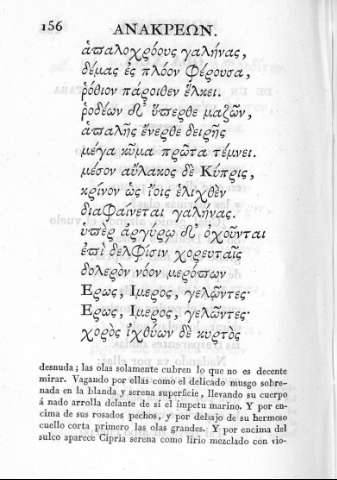 156 ΑΝΑΚΡΕΩΝ.
ἁπαλοχρόους γαλήνας,
δέμας ἐς πλόον φέρουσα,
ῥόθιον πάροιθεν ἕλκει.
ῥοδέων δ' ὕπερθε μαζῶν,
ἁπαλῆς ἔνερθε δειρῆς
μέγα κῦμα πρῶτα τέμνει.
μέσον αὔλακος δὲ Κύπρις,
κρίνον ὡς ἴοις ἑλιχθὲν
διαφαίνεται γαλήνας.
ὑπὲρ ἀργύρῳ δ' ὀχοῦνται
ἐπὶ δελφῖσιν χορευταῖς
δολερὸν νόον μερόπων
Ερως, Ιμερος, γελῶντες·
Ερως, Ιμερος, γελῶντες·
χορὸς ἰχθύων δὲ κυρτὸς
desnuda; las olas solamente cubren lo que no es decente
mirar. Vagando por ellas como el delicado musgo sobre-
nada en la blanda y serena superficie, llevando su cuerpo
á nado arrolla delante de sí el ímpetu marino. Y por en-
cima de sus rosados pechos, y por debajo de su hermoso
cuello corta primero las olas grandes. Y por encima del
sulco aparece Cipria serena como lirio mezclado con vio-